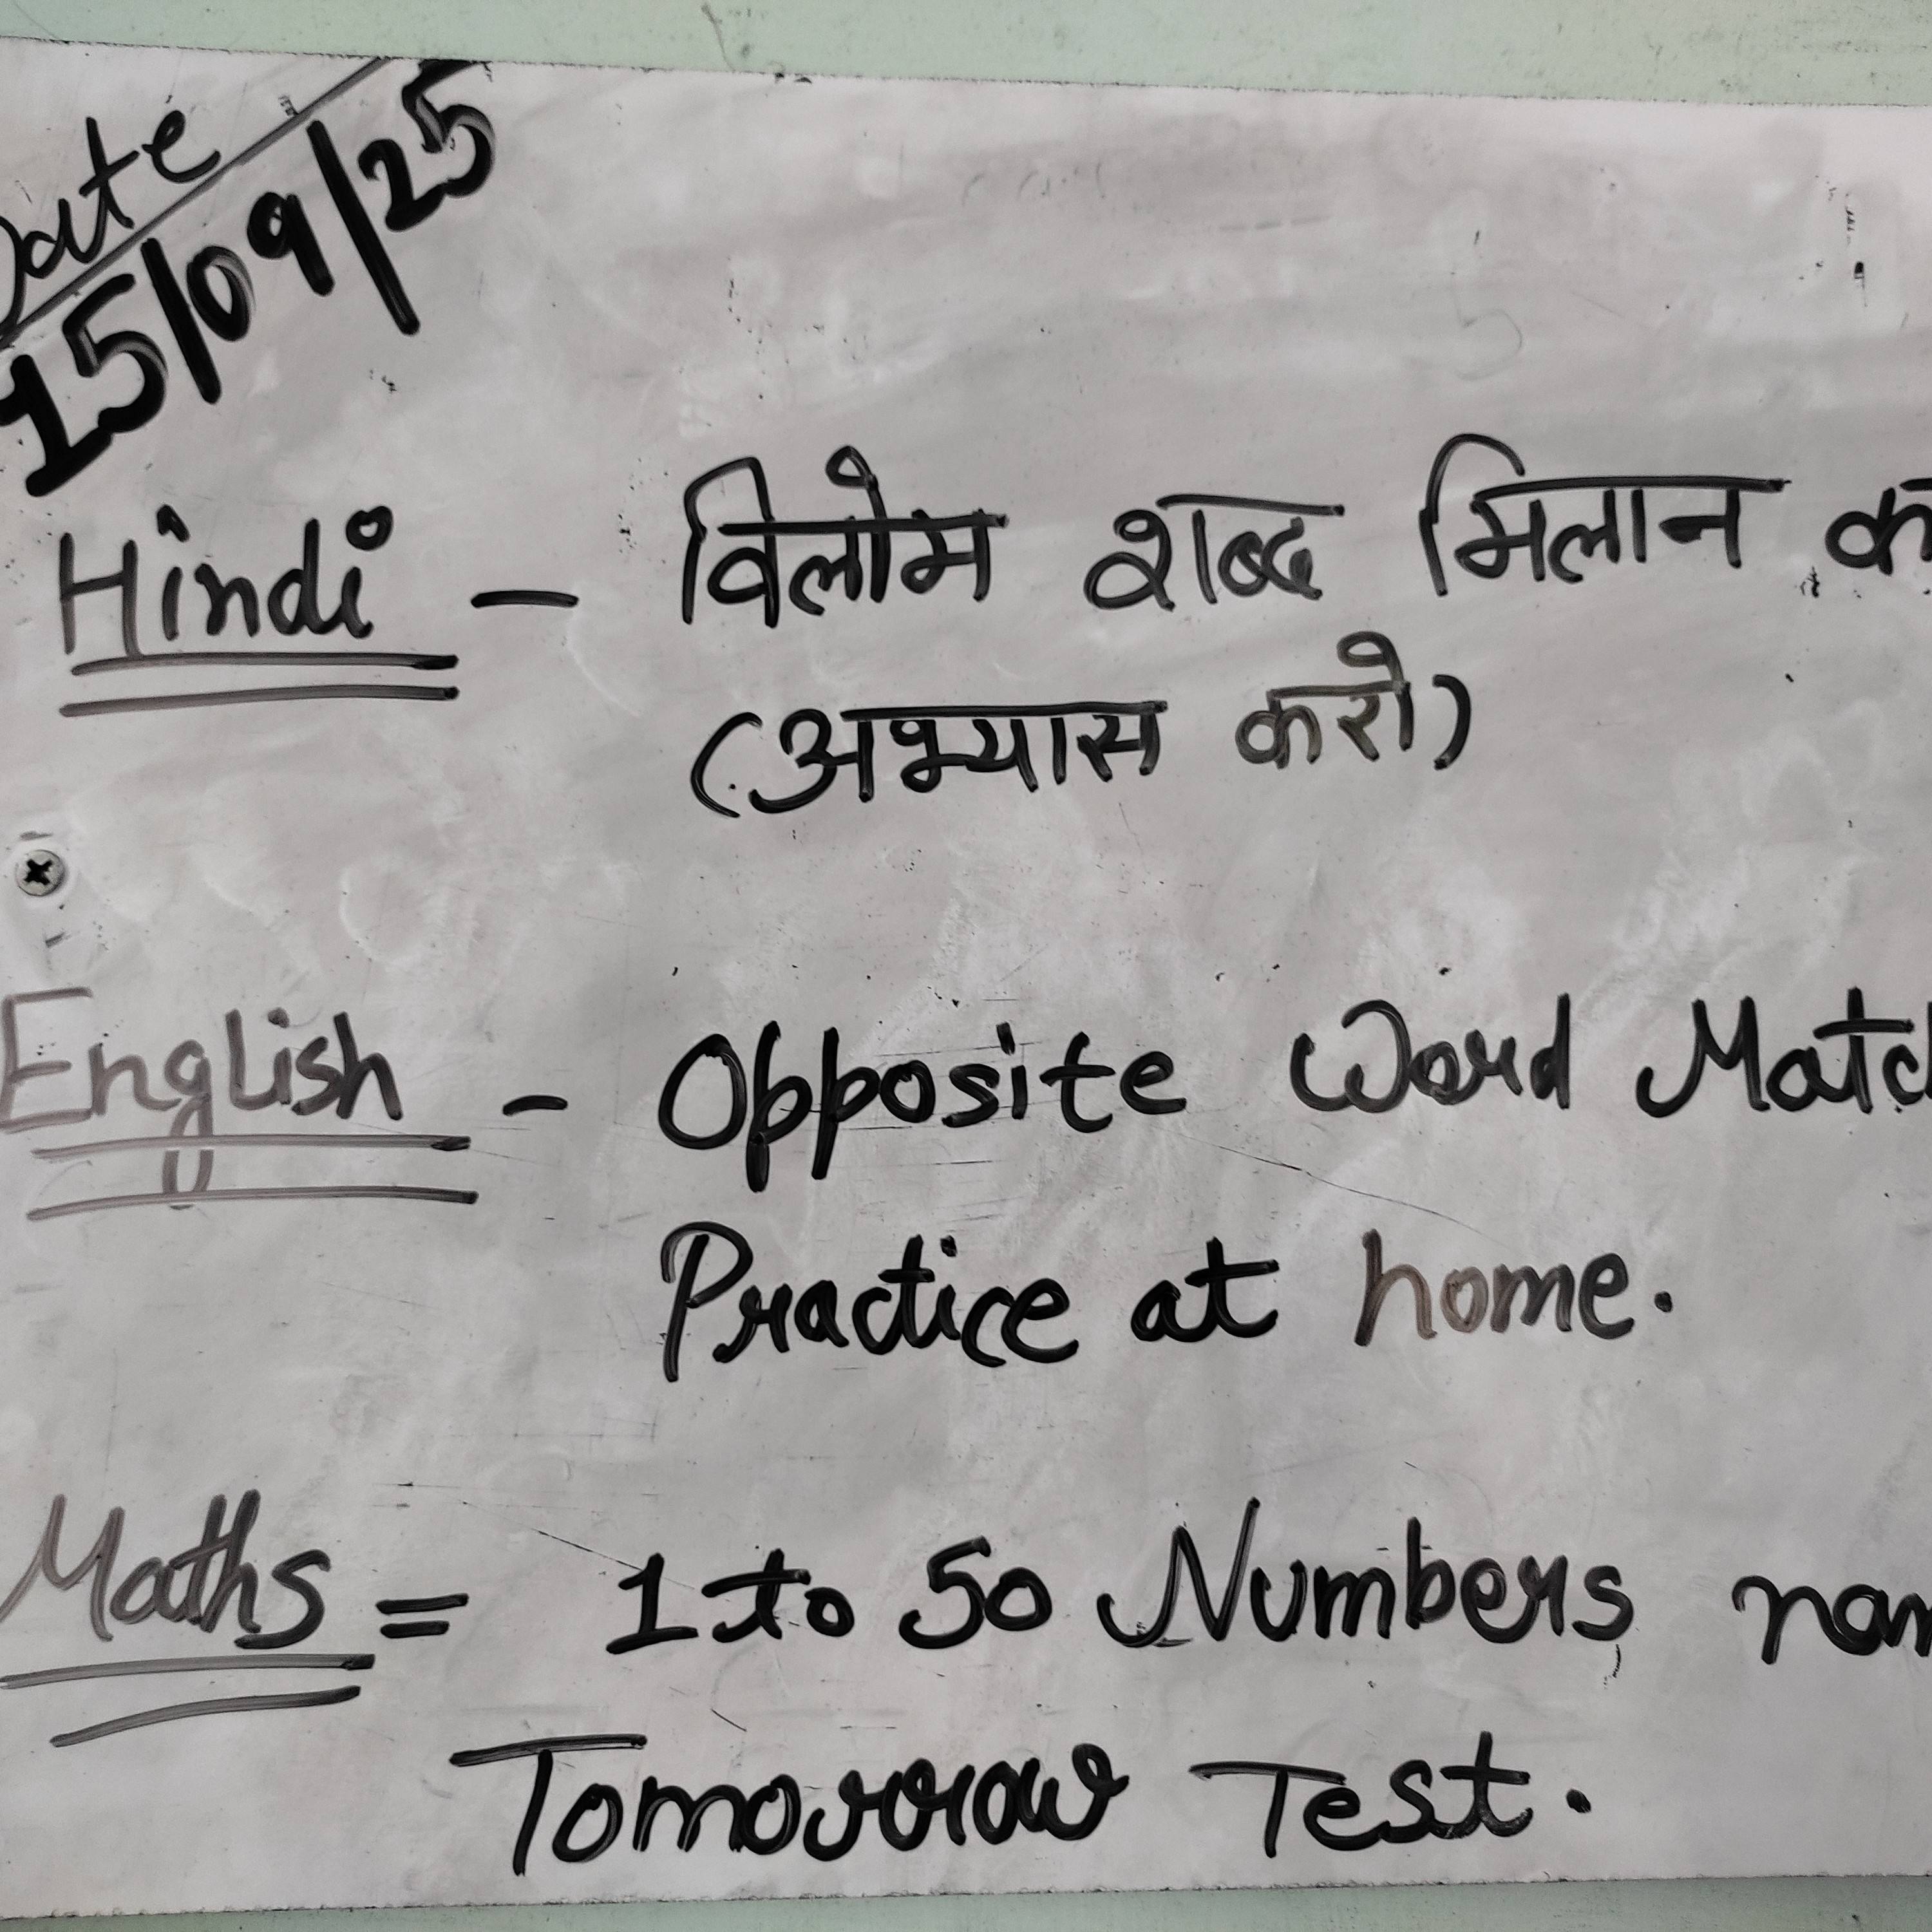 Date
15/09/25
Hindi - विलोम शब्द मिलान
(अभ्यास करो)
English - Opposite Word Match
Practice at home.
Maths = 1 to 50 Numbers
Tomorrow Test.